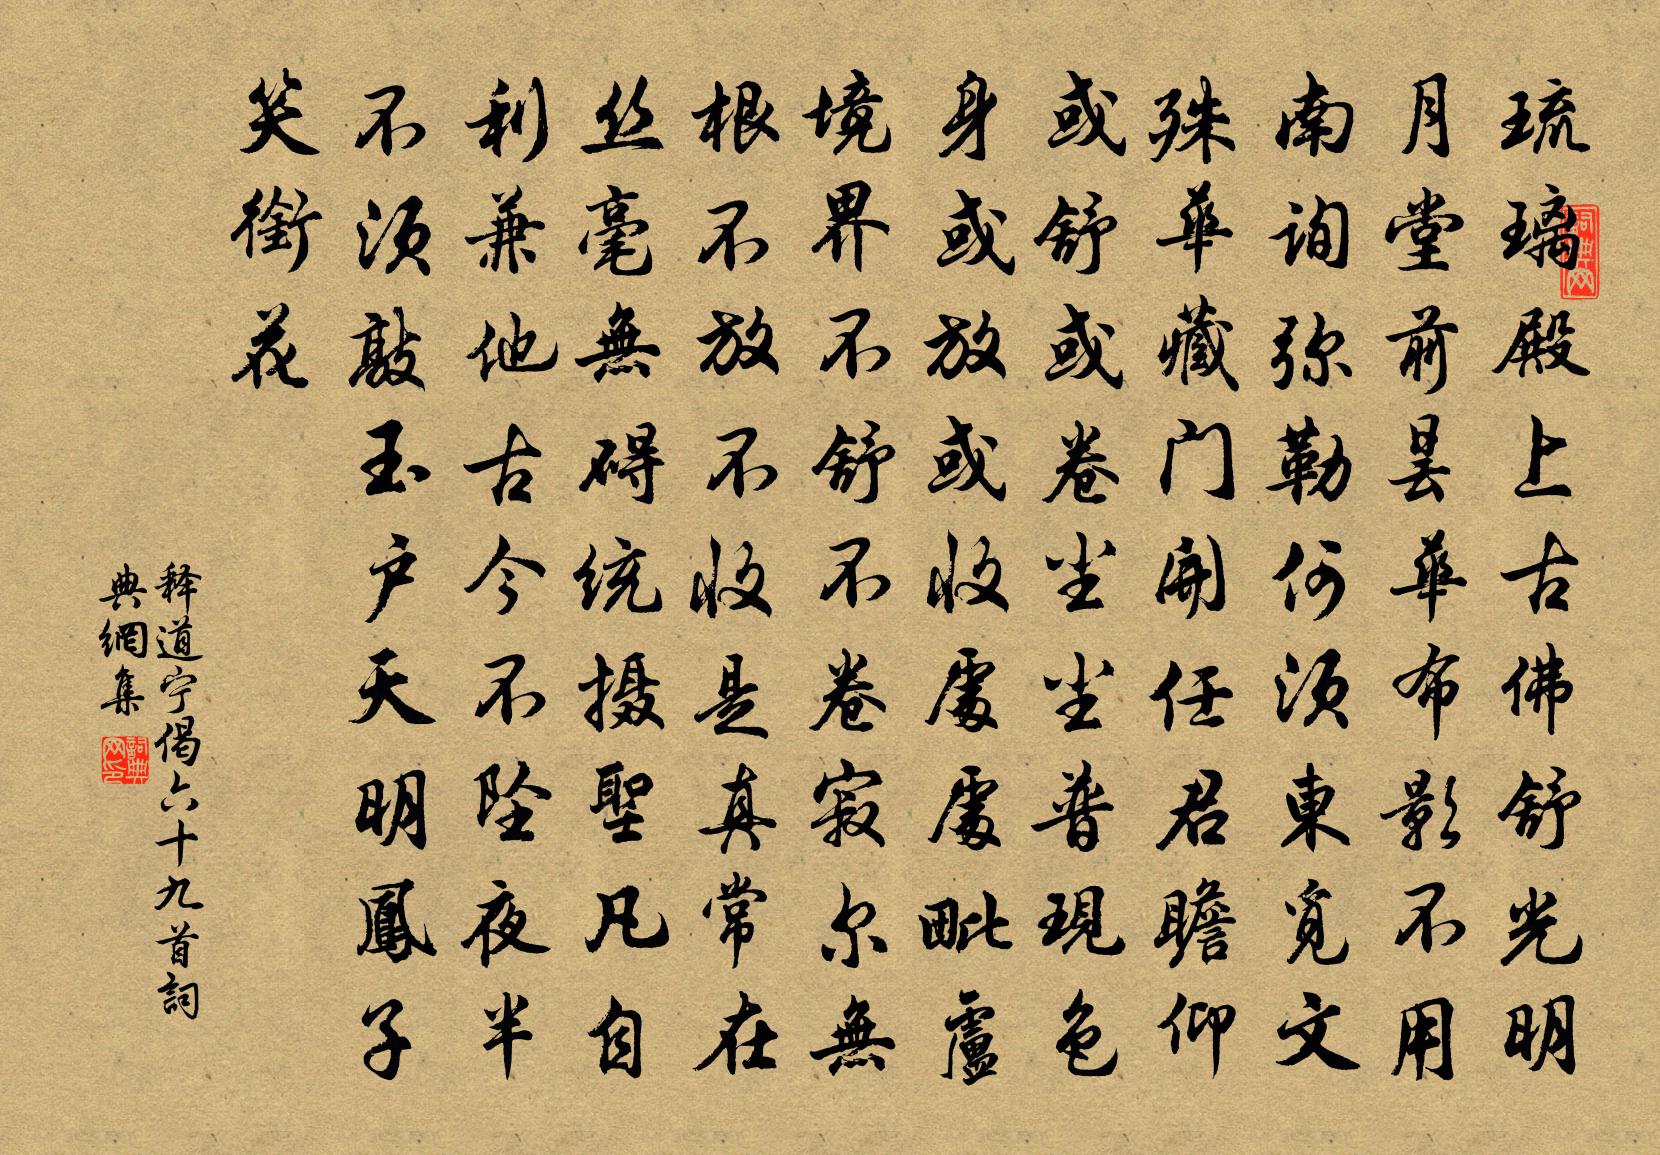 琉璃殿上古佛舒光明
月堂前昙华布影不用
南询弥勒何须東觅文
殊华藏门開任君瞻仰
或舒或卷尘尘普現色
身或放或收處處毗盧
境界不舒不卷寂尔無
根不放不收是真常在
丝毫無碍统摄聖凡自
利兼他古今不坠夜半
不须敲玉户天明鳳子
笑銜花
释道宁偈六十九首詞
典網集
词典网
詞典网印